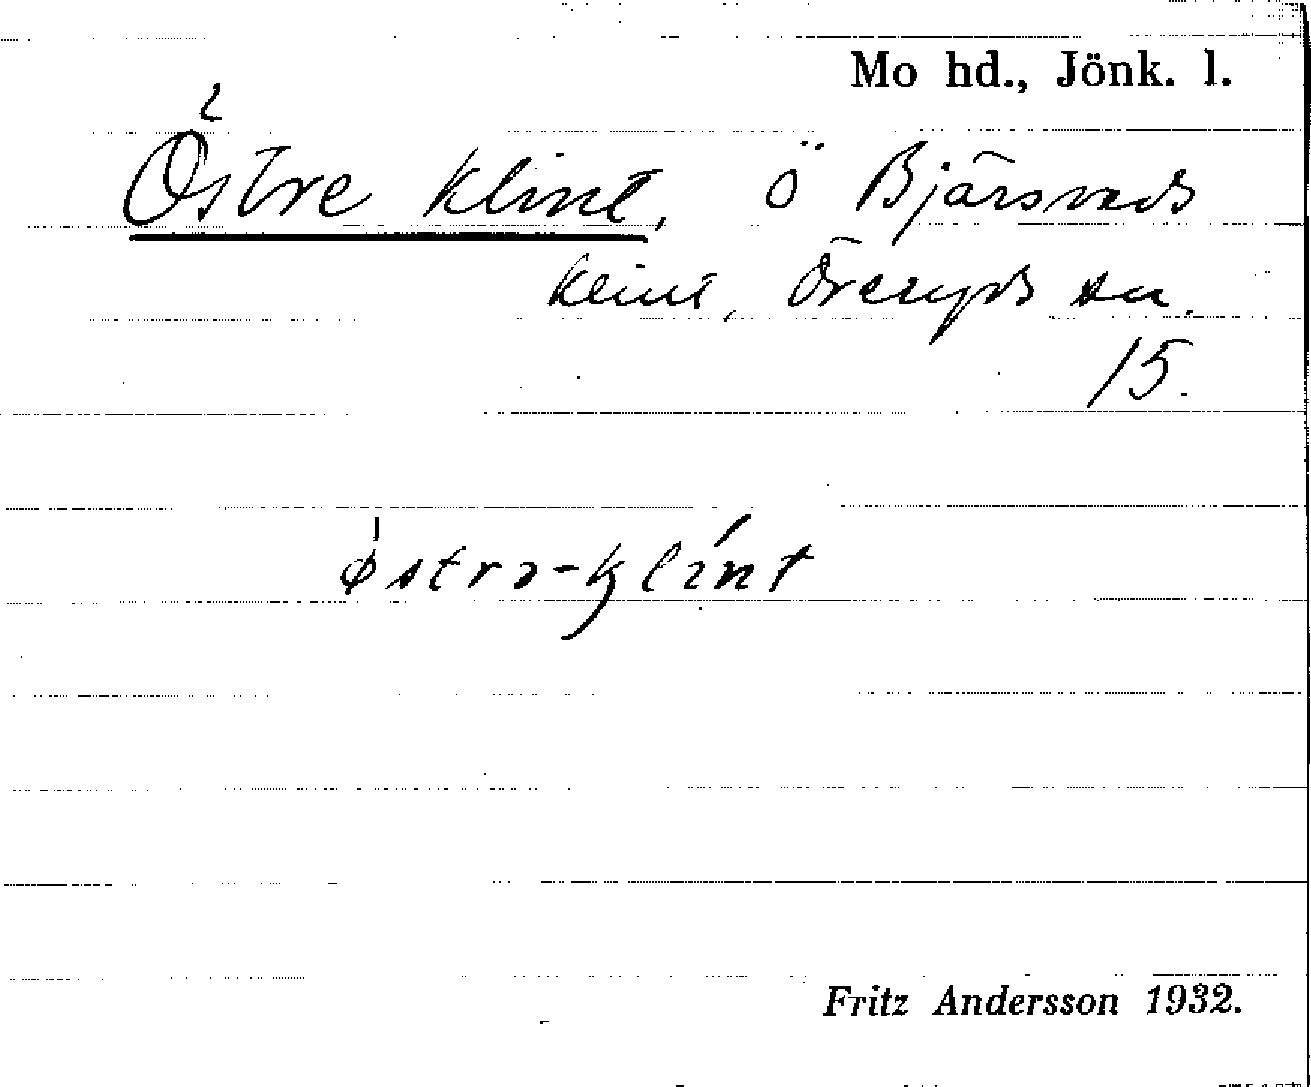 Mo hd., Jönk. l.
Östre klint, ö Bjärsveds
klint, Öreryds sn.
15.
østrə-kl̨ínt
Fritz Andersson 1932.